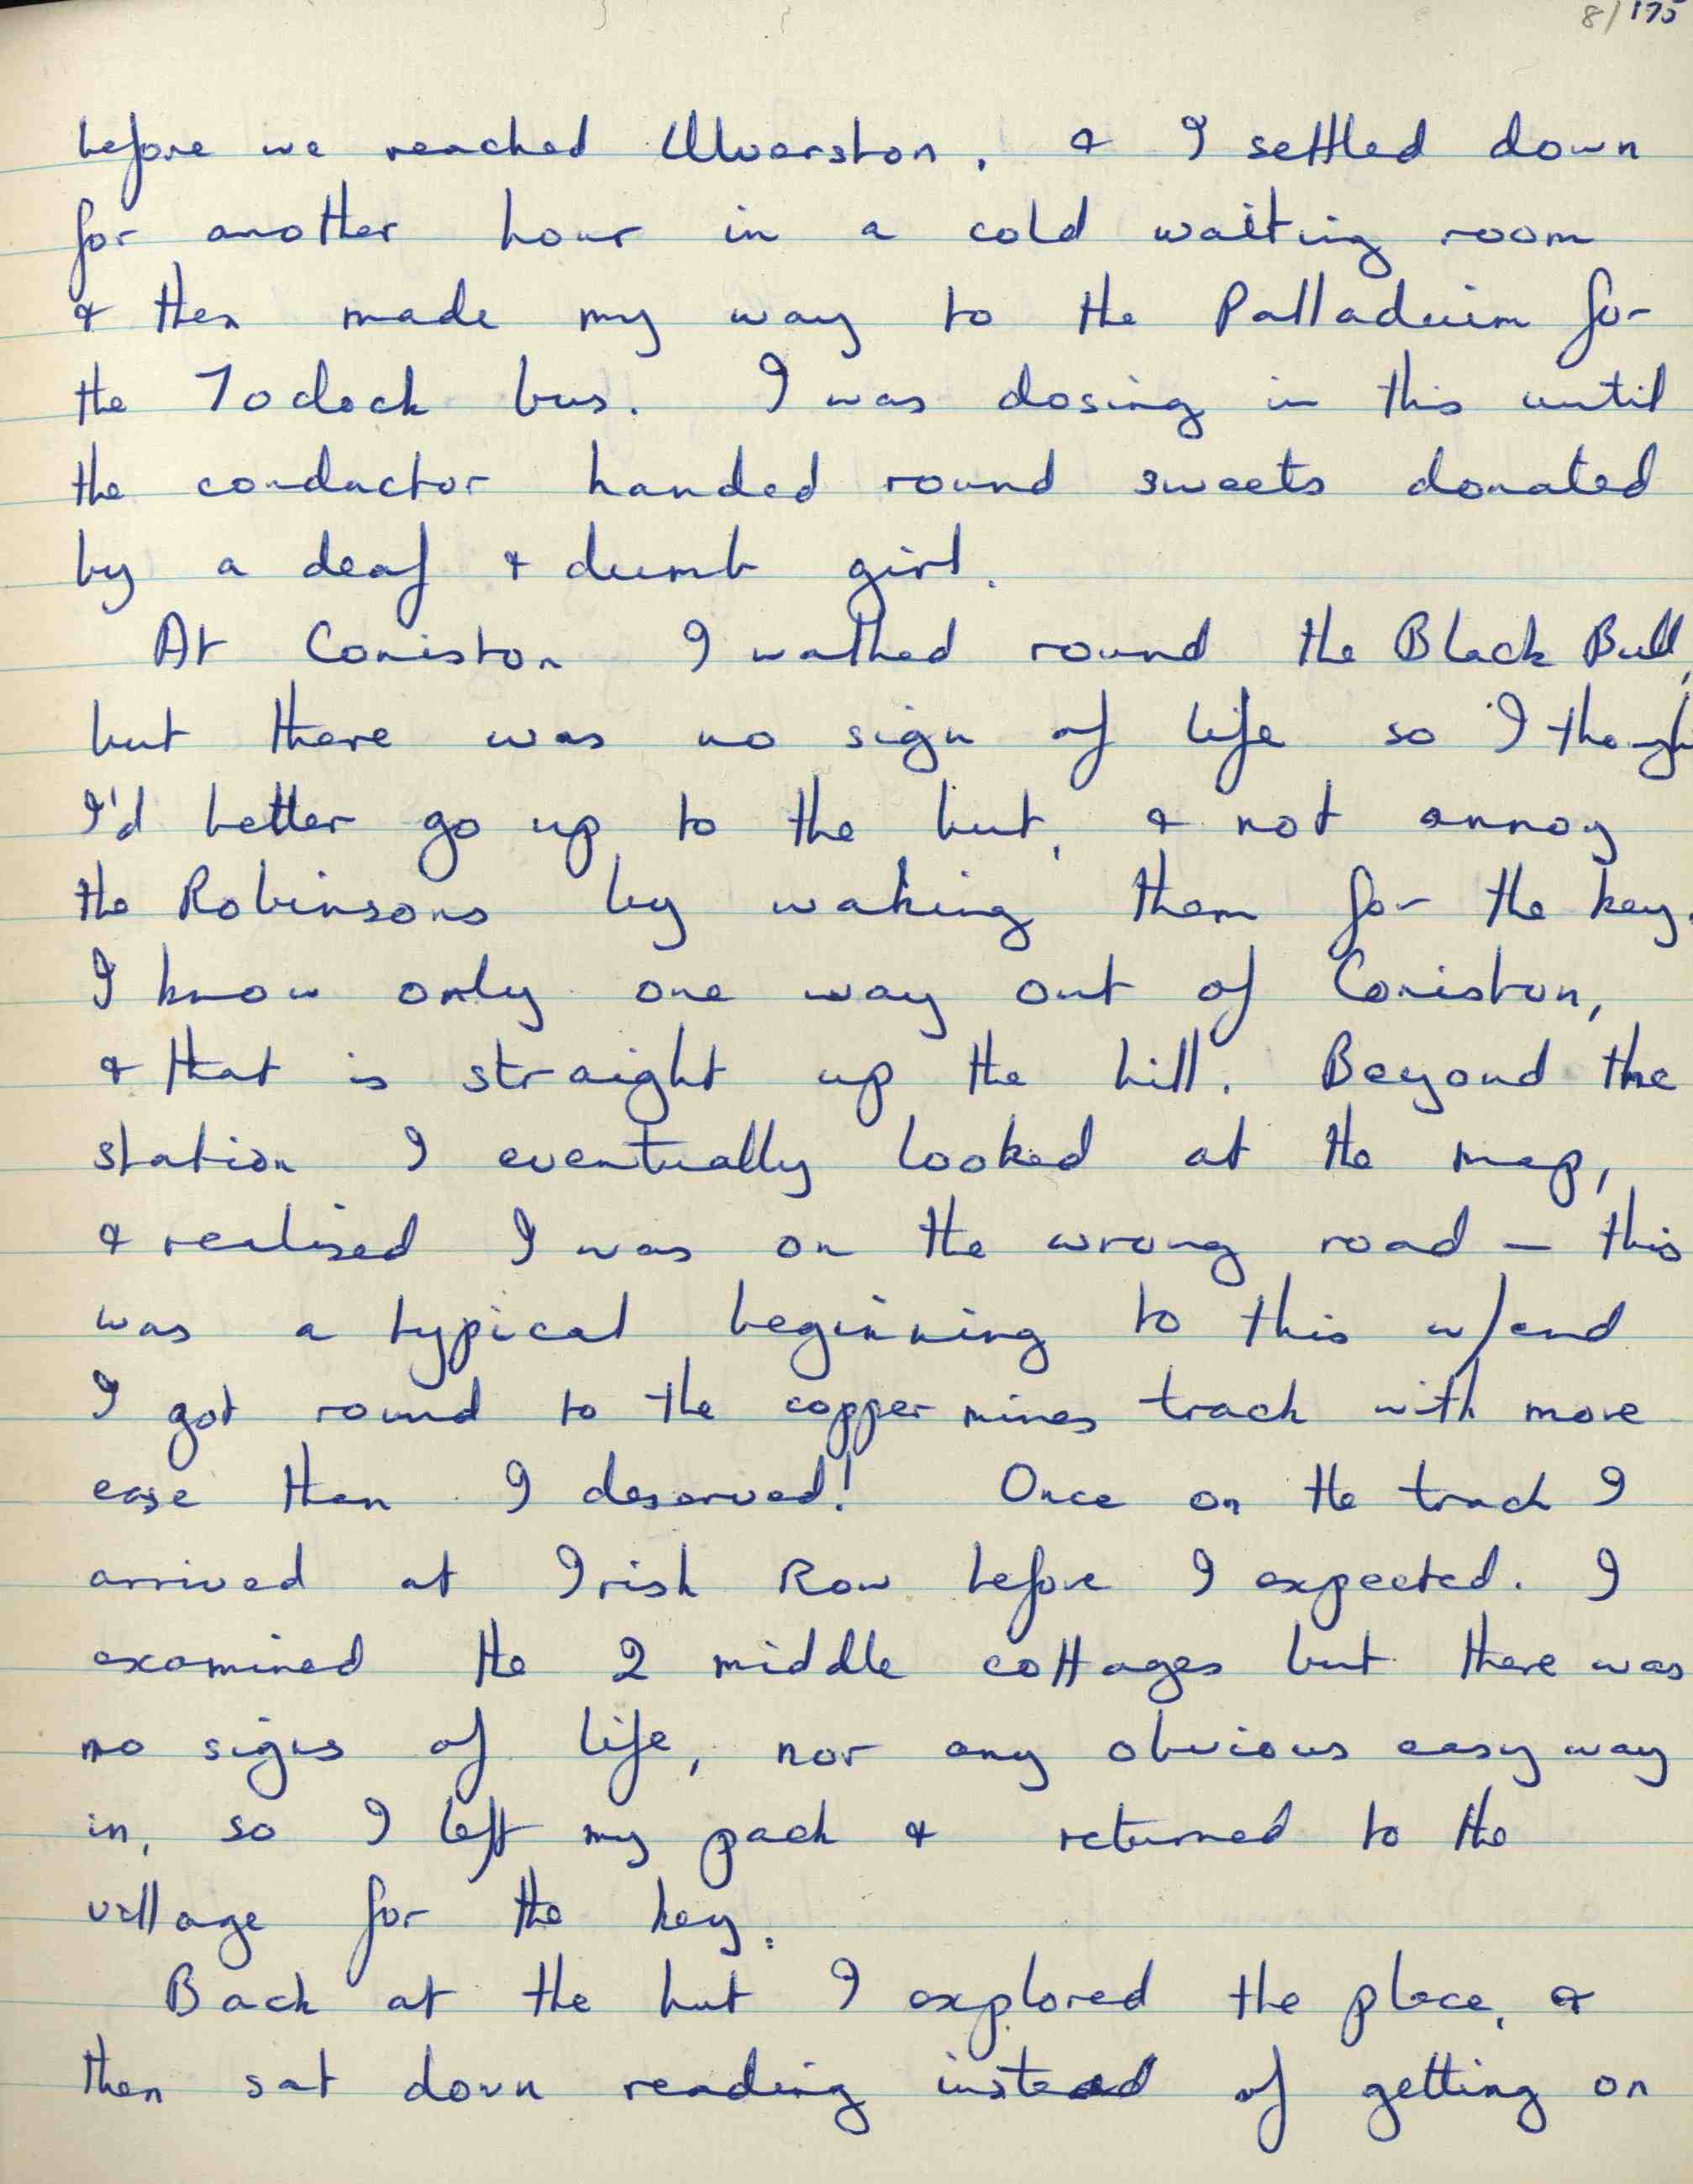 8/175
before we reached Ulverston, & I settled down
for another hour in a cold waiting room
& then made my way to the Palladuim for
the 7 oclock bus. I was dosing in this until
the conductor handed round sweets donated
by a deaf & dumb girl.
At Coniston I walked round the Black Bull,
but there was no sign of life so I though
I'd better go up to the hut, & not annoy
the Robinsons by waking them for the key.
I know only one way out of Coniston,
& that is straight up the hill. Beyond the
station I eventually looked at the map,
& realised I was on the wrong road – this
was a typical beginning to this w/end
I got round to the copper mines track with more
ease than I deserved! Once on the track I
arrived at Irish Row before I expected. I
examined the 2 middle cottages but there was
no signs of life, nor any obvious easy way
in, so I left my pack & returned to the
village for the key.
Back at the hut I explored the place, &
then sat down reading instead of getting on